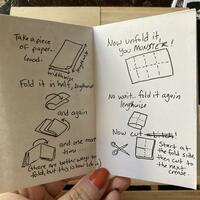 Take a piece
of paper...
(Good.
widthwise
lengthwise
Fold it in half, lengthwise
and again
and one more
time...
(there are better ways to
fold, but this is how I do it)
Now unfold it,
you MONSTER!
No wait... fold it again
lengthwise
Now cut
Start at
the fold side,
then cut to
the next
crease.